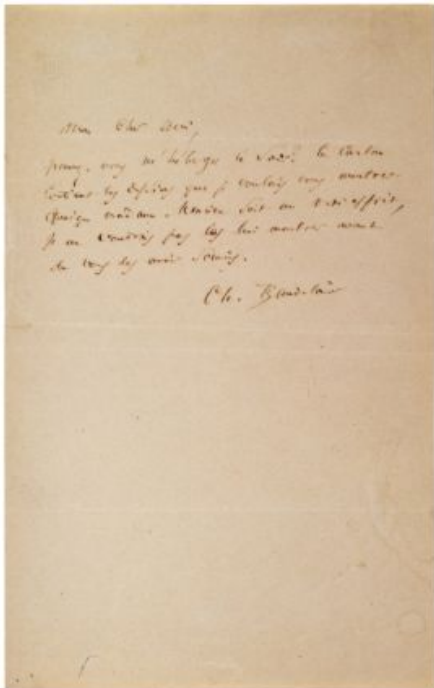 Mon cher ami,
pouvez-vous m'héberger ce soir? Ce carton
contient les dessins que je voulais vous montrer
Quoique madame soit un
je ne voudrais pas les lui montrer avant
de vous les avoir soumis.
Ch. Baudelaire